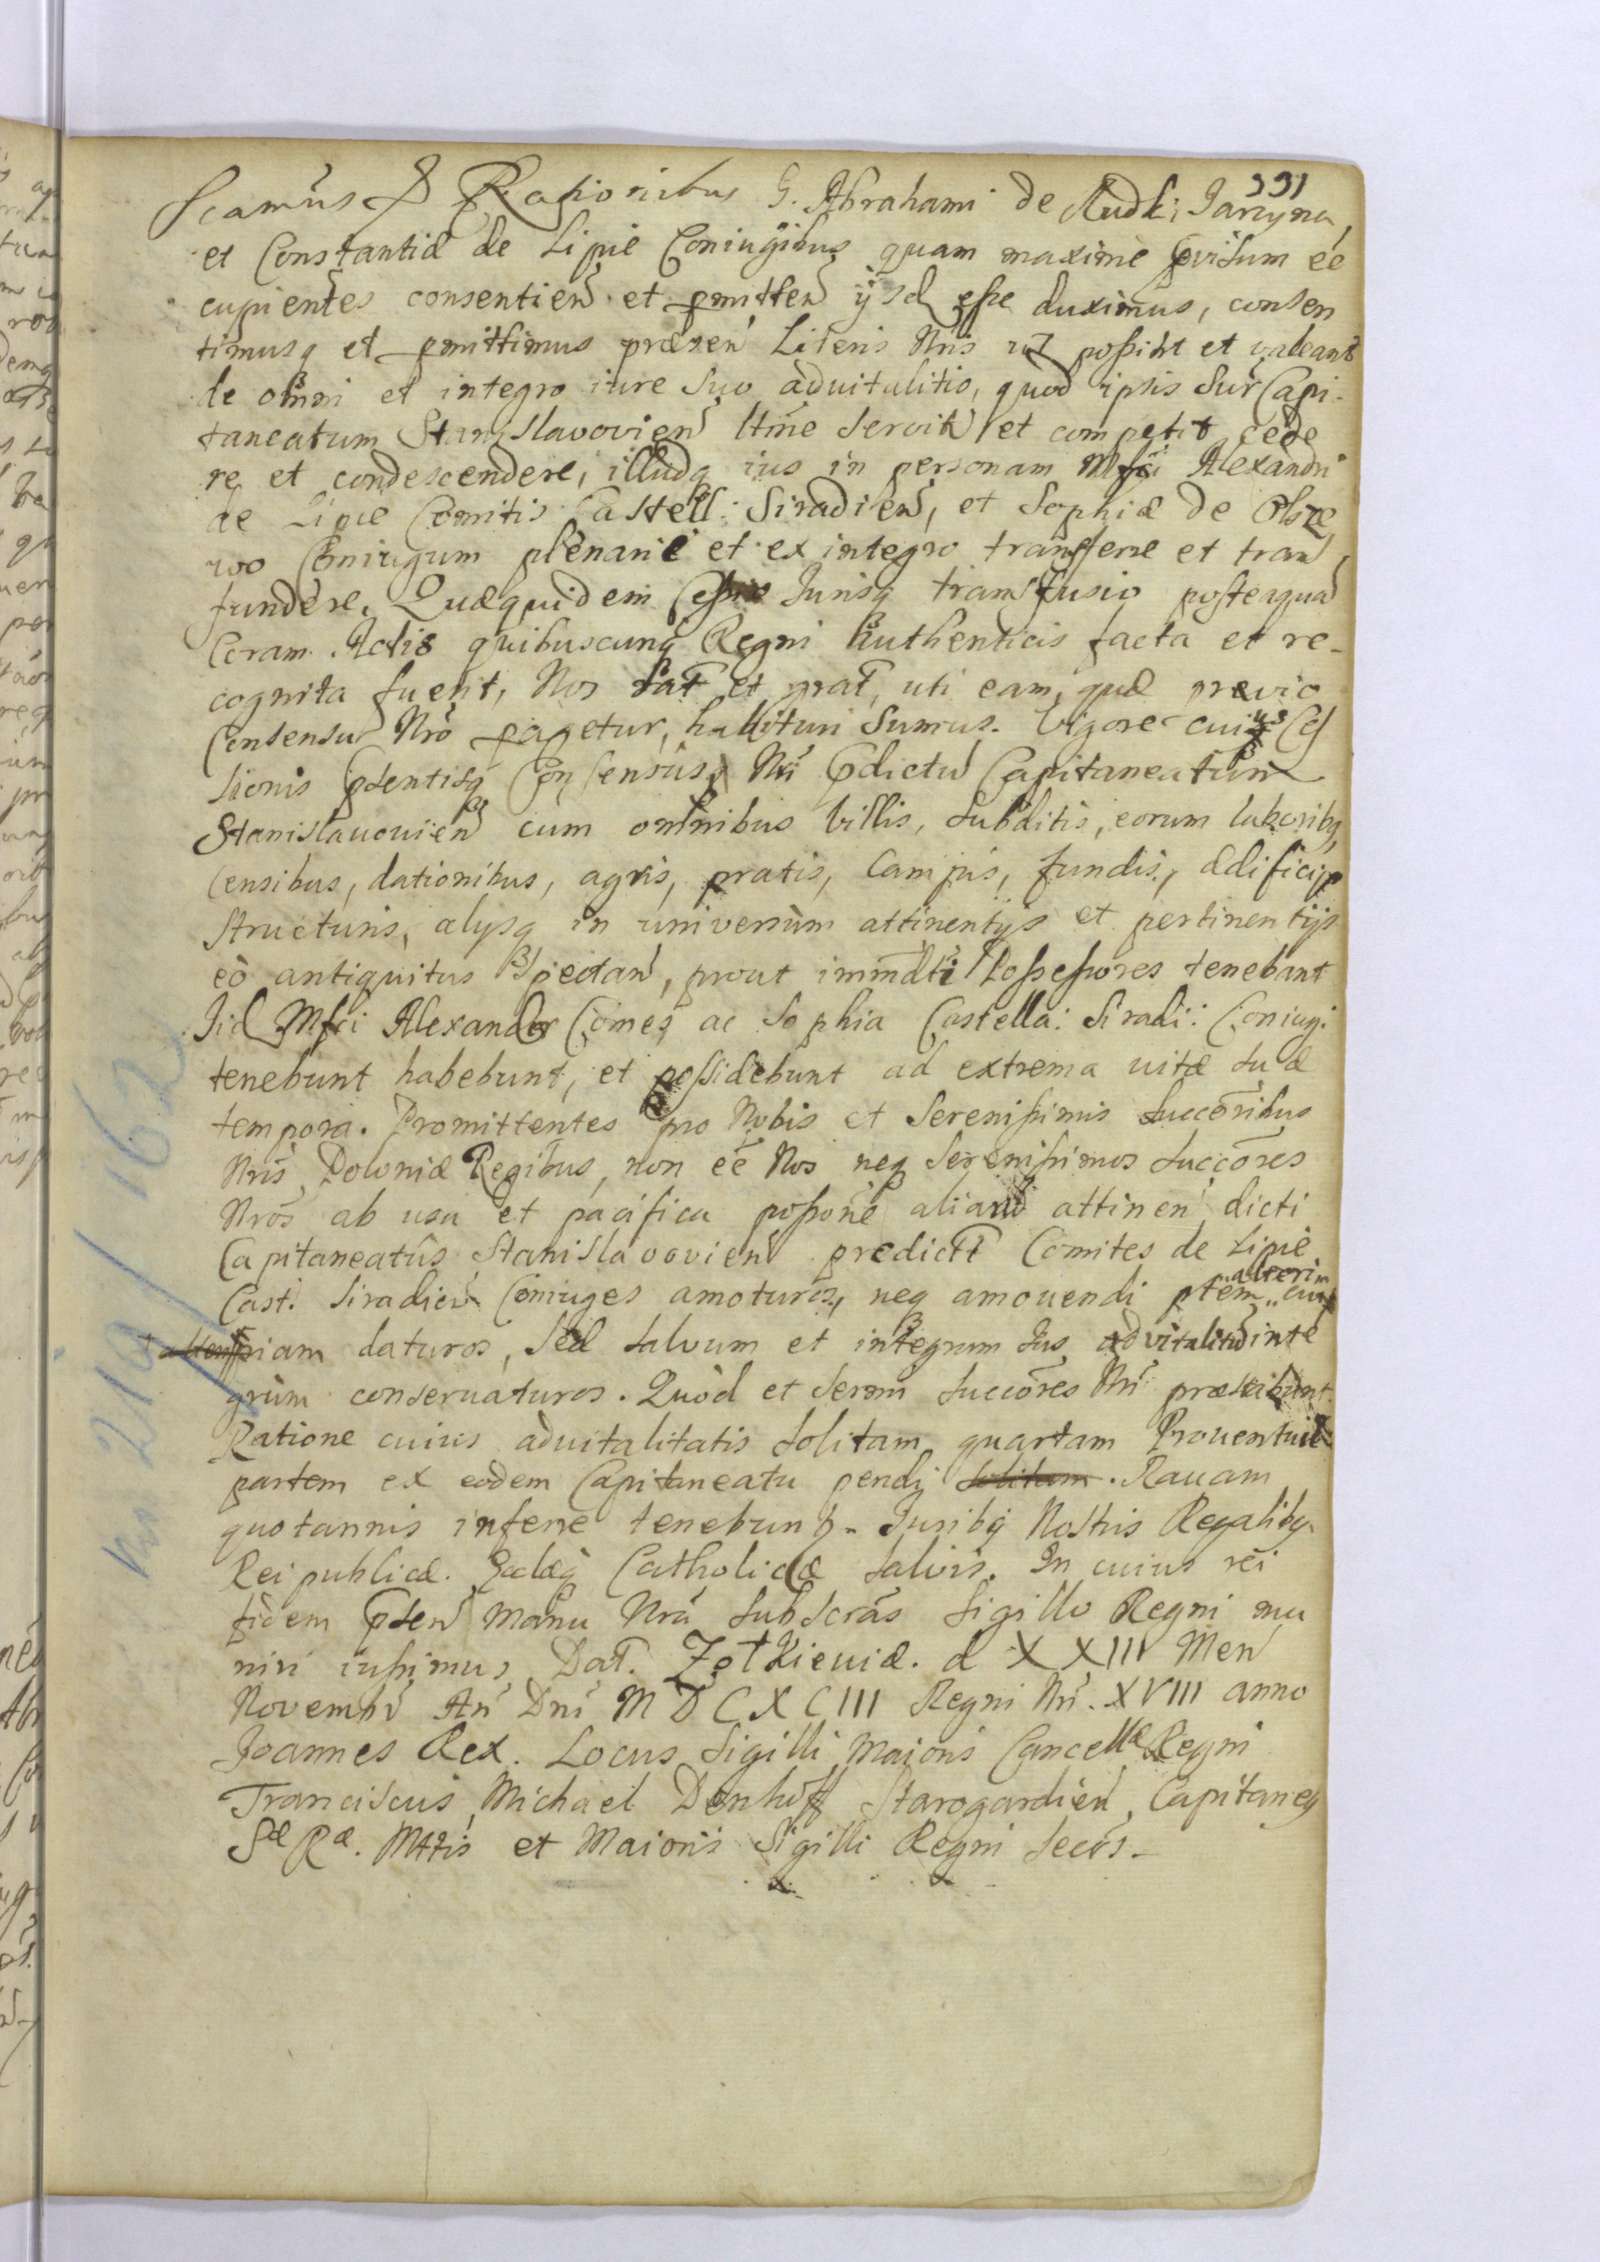 391
scamus & Rationibus G. Abrahami de Rudki Jarzyna,
et Constantiæ de Lipie Coniugibus quam maximè pvisum eé
cupientes consentien et pmitten ijsd esse duximus, consen
timusq et pmittimus præsen Literis Nris ut possint et valeant
de omni et integro iure suo aduitalitio, quod ipsis sur Capi-
taneatum Stanislavovien ltme servit et competit cede
re et condescendere, illudq ius in personam Mfci Alexandri
de Lipie Comitis Castell: Siradien, et Sophiæ de Olsze
wo Coniugum plenarie et ex integro transferre et trans
fundere. Quæquidem Cessio Jurisq transfusio postquam
Coram Actis quibuscunq Regni Authenticis facta et re-
cognita fuerit, Nos rat et grat, uti eam, quæ prævio
Consensu Nro pagetur, habituri sumus. Vigore cuius Ces
sionis pntisq Consensus Nri pdictu Capitaneatum
Stanislauouien cum omnibus Villis, subditis, eorum laboribq,
Censibus, dationibus, agris, pratis, Campis, fundis, ædificijs
structuris, alysq in universum attinentijs et pertinentijs
eò antiquitus spectan, prout immdti Possessores tenebant
Jid Mfci Alexander Comes ac Sophia Castella: Siradi: Coniug:
tenebunt habebunt, et possidebunt ad extrema uitæ suæ
tempora. Promittentes pro Nobis et Serenissimis Succoribus
Nris Poloniæ Regibus, non eé Nos neq Serenissimos Succores
Nros ab usu et pacifica possone aliarum attinen dicti
Capitaneatûs Stanislavovien predict Comites de Lipie
Cast. Siradien Coniuges amoturos, neq amouendi ptem alteri cui
piam daturos, Sed salvum et integrum Jus advitalitiu inte
grum conseruaturos. Quod et Sermi Succores Nri præstabunt.
Ratione cuius aduitalitatis solitam quartam Prouentuu
partem ex eodem Capitaneatu pendi solitam. Rauam
quotannis inferre tenebunt. Juribq Nostris Regalibq
Reipublicæ. Ecclæq Catholicæ salvis. In cuius rei
fidem psen Manu Nra subscras Sigillo Regni mu
niri iussimus Dat. Zołkieuiæ. d XXIII Men
Novembr An Dni MDCXCIII Regni Nri. XVIII anno
Joannes Rex. Locus Sigilli Maioris Cancellæ Regni
Franciscus Michael Denhoff Starogardien, Capitaneq
Sæ Ræ. Mttis et Maioris Sigilli Regni Secrs.